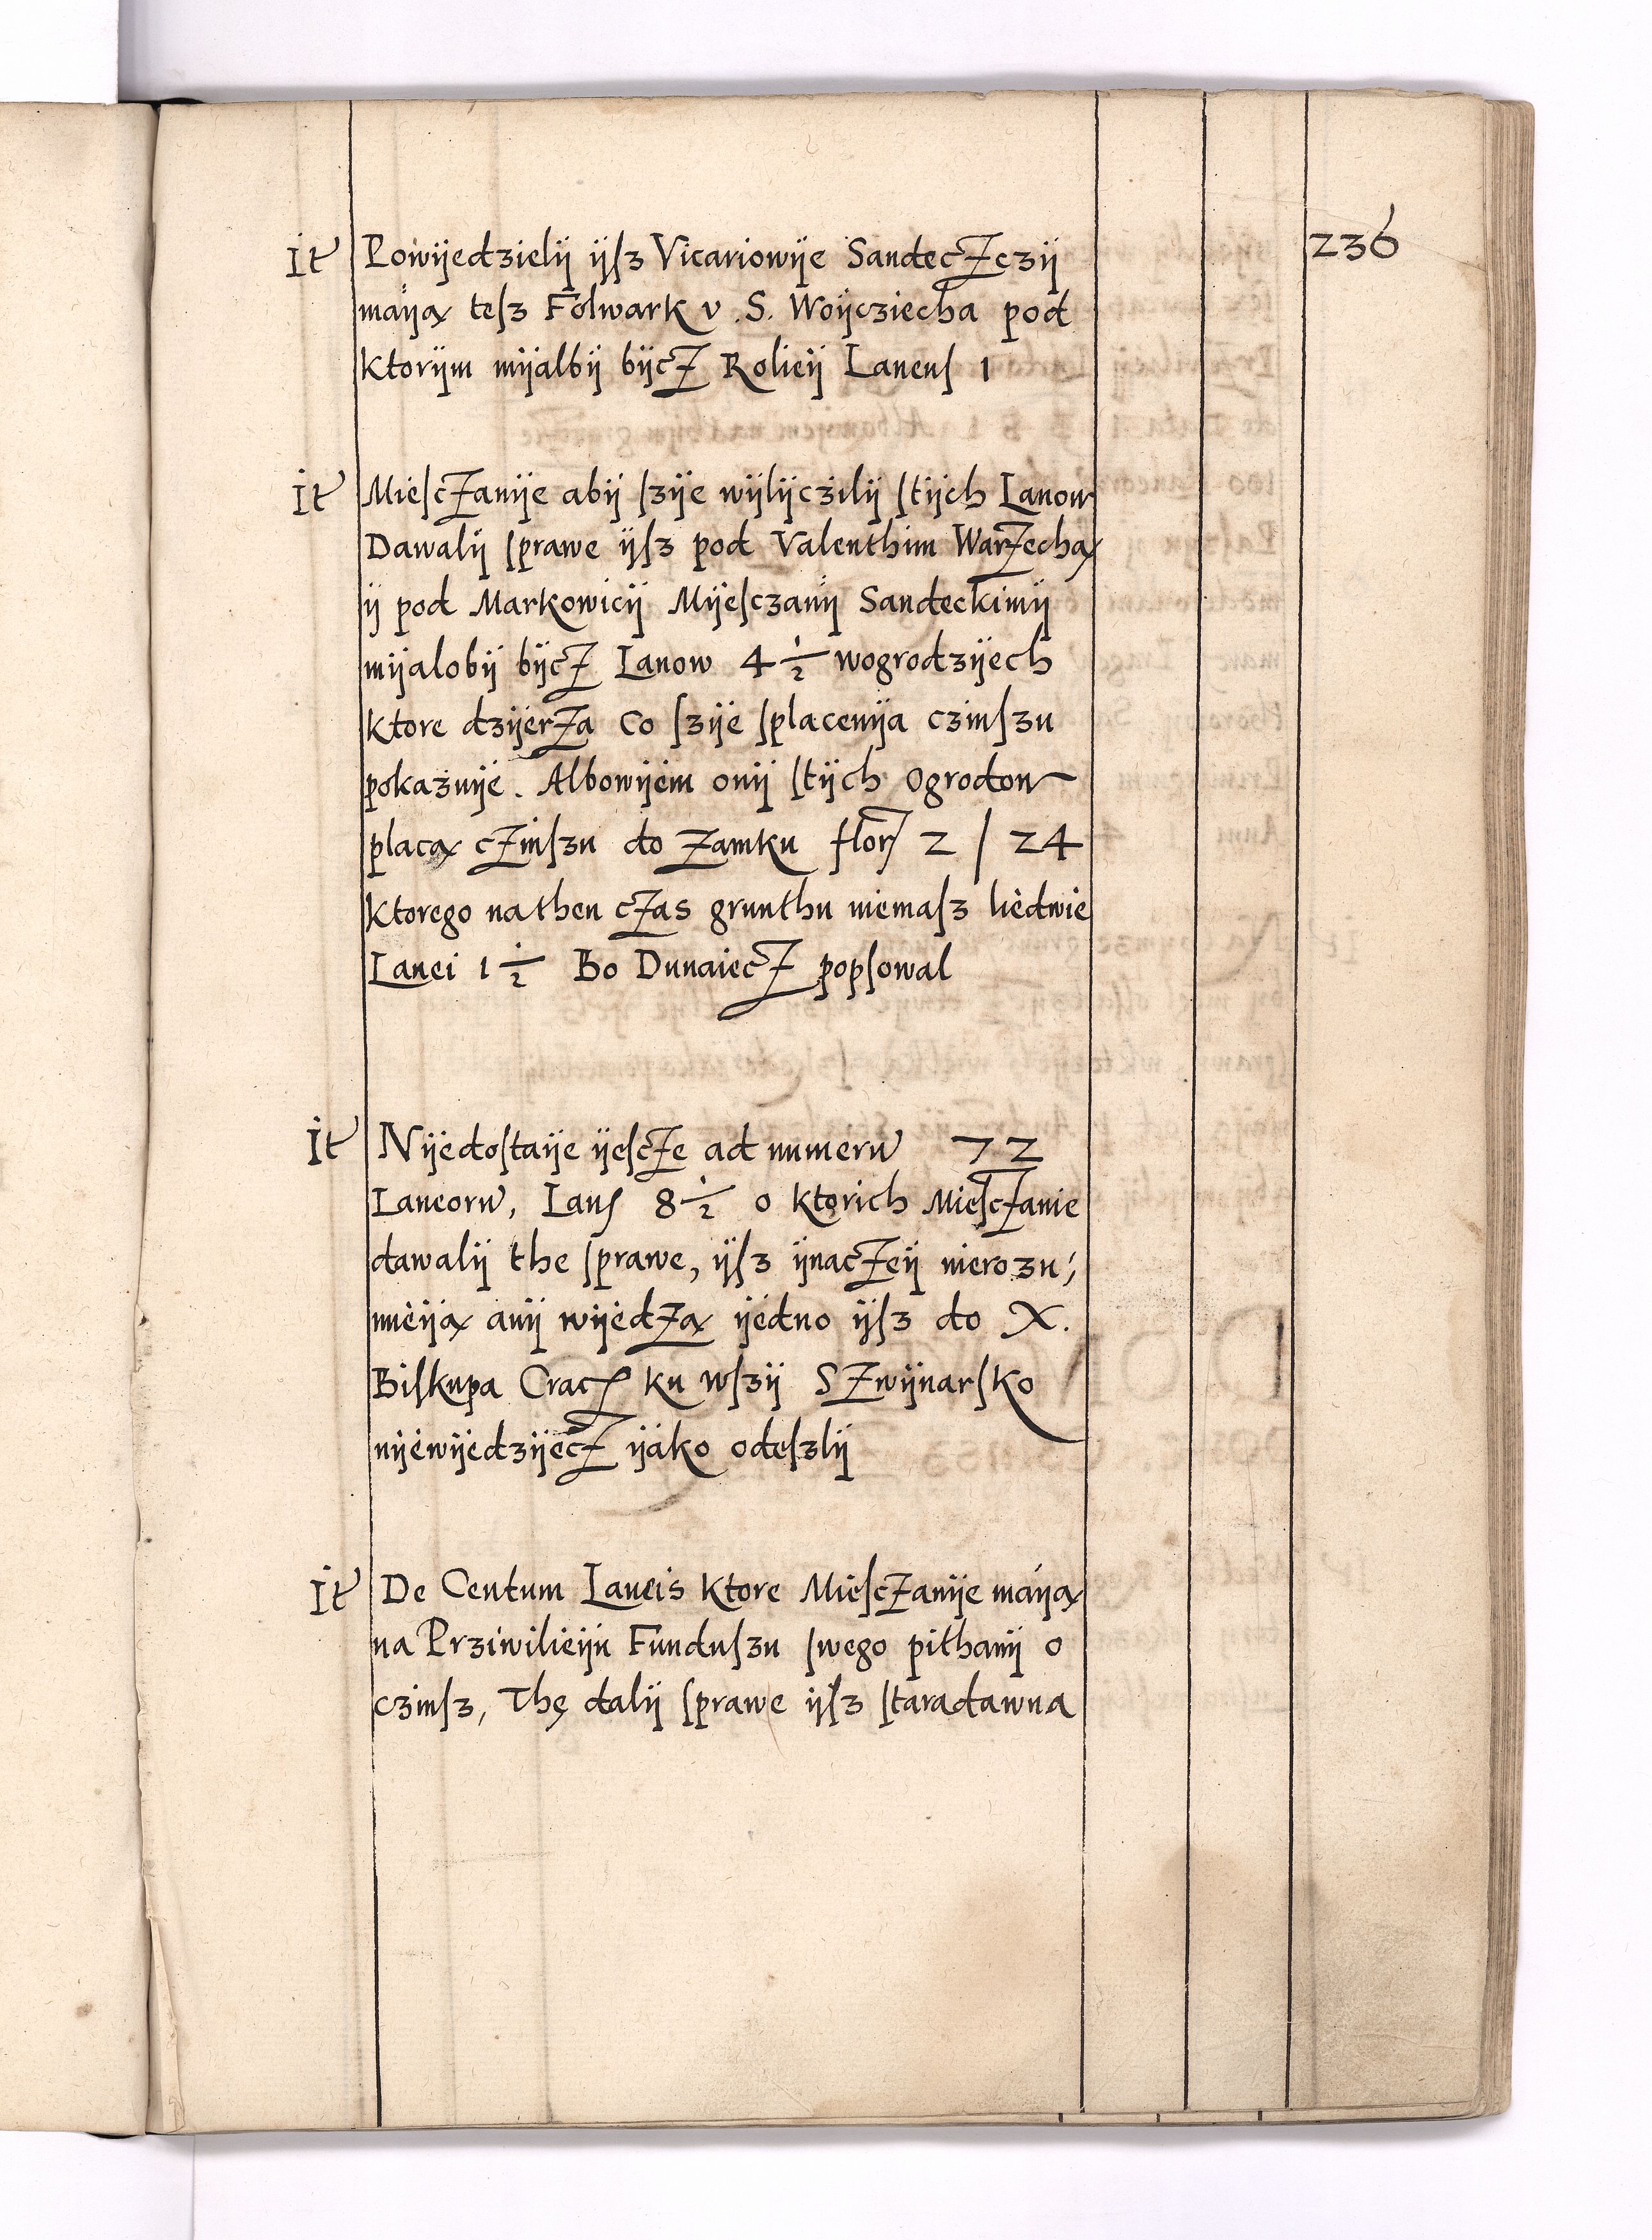 236
It Powijedzielij ijsz Vicariowije Sandeczczij
maija tesz Folwark v. S. Woijcziecha pod
Ktorijm mijalbij bijcz Rolieij Laneus 1
It Miesczanije abij szije wijlijczilij stijch Lanow
Dawalij sprawe ijsz pod Valenthim Warzechą
ij pod Markowicij Mijesczanij Sandeckimij
mijalobij bijcz Lanow 4 1/2 wogrodzijech
Ktore dzijerza Co szije splacenija czinszu
pokazuije. Albowijem onij stijch Ogrodow
placą czinszu do Zamku flor 2 / 24
Ktorego nathen czas grunthu niemasz liedwie
Lanei 1 1/2 Bo Dunaiecz popsowal
It Nijedostaije ijescze ad numeru 72
Laneoru, Laus 8 1/2 o Ktorich Miesczanie
dawalij the sprawe, ijsz ijnaczeij nierozu;
mieiją anij wijedzą ijedno ijsz do X.
Biskupa Crac ku wszij Szwijnarsko
nijewijedzijecz ijako odeszlij
It De Centum Laneis Ktore Miesczanije maiją
na Prziwilieiju Funduszu swego pithanij o
czinsz, Thę dalij sprawe ijsz staradawna